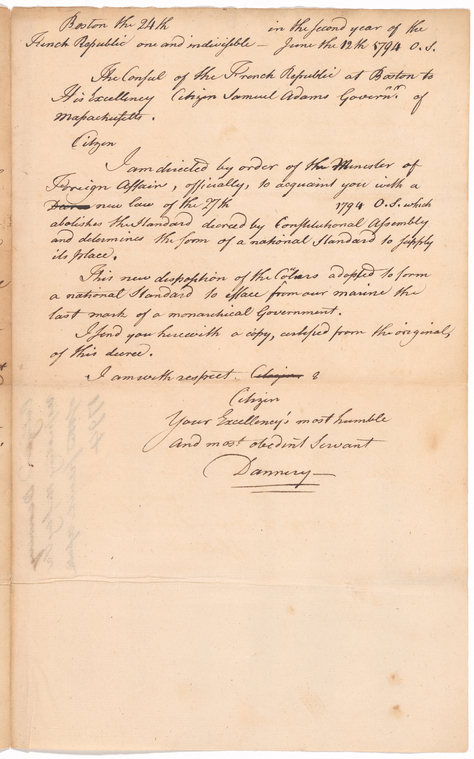 Boston the 24th in the second year of the
French Republic one and indivisible — June the 12th 1794 O. S.
The Consul of the French Republic at Boston to
His Excellency Citizen Samuel Adams Governor of
Massachusetts.
Citizen
I am directed by order of the Minister of
Foreign Affair, officially, to acquaint you with a
new law of the 27th 1794 O.S. which
abolishes the Standard decreed by Constitutional Assembly
and determines the form of a national Standard to supply
its place.
This new desposition of the Colours adopted to form
a national Standard to efface from our marine the
last mark of a monarchical Government.
I send you herewith a copy, certified from the original,
of this decree.
I am with respect Citizen &
Citizen
Your Excellency's most humble
and most obedient Servant
Dannery